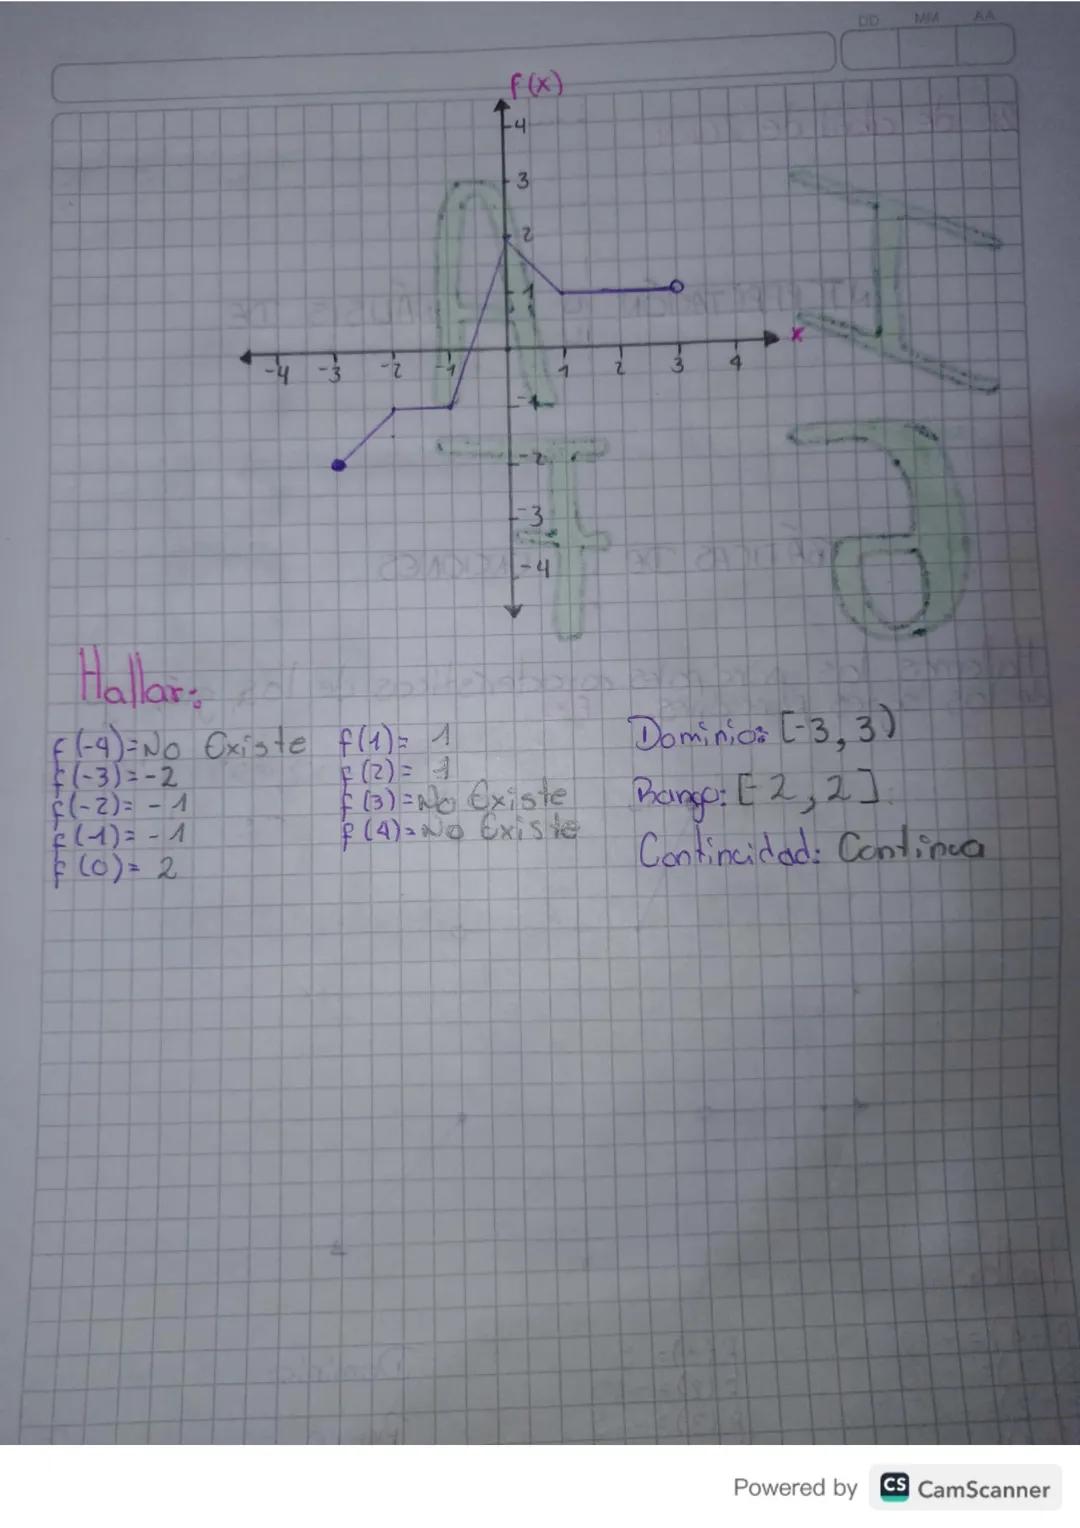 DD MM AA
f(x)
4
3
2
1
x
-4 -3 -2 -1 1 2 3 4
-1
-2
-3
-4
Hallar:
f(-4)=No Existe f(1)= 1 Dominio: [-3, 3)
f(-3)=-2 f(2)= 1
f(-2)= -1 f(3)=No Existe Rango: [-2, 2]
f(-1)= -1 f(4)=No Existe
f(0)= 2 Contincidad: Continua
Powered by CS CamScanner